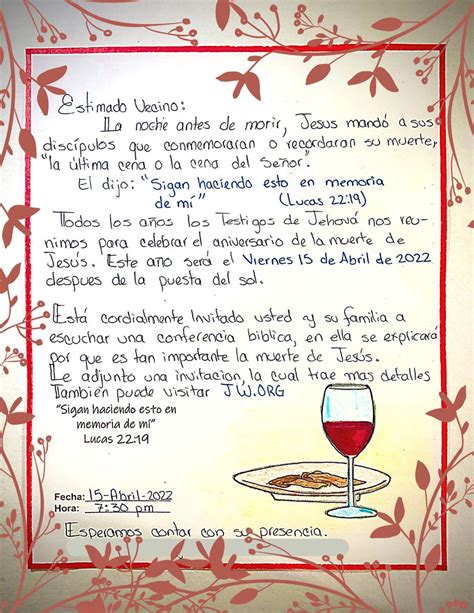 Estimado Vecino:
La noche antes de morir, Jesus mandó a sus
discípulos que conmemoraran o recordaran su muerte,
"la última cena o la cena del Señor."
El dijo: "Sigan haciendo esto en memoria
de mí" (Lucas 22:19)
Todos los años los Testigos de Jehová nos reu-
nimos para celebrar el aniversario de la muerte de
Jesús. Este año será el Viernes 15 de Abril de 2022
despues de la puesta del sol.
Está cordialmente Invitado usted y su familia a
escuchar una conferencia biblica, en ella se explicará
por que es tan importante la muerte de Jesús.
Le adjunto una invitacion la cual trae mas detalles
Tambien puede visitar JW.ORG
"Sigan haciendo esto en
memoria de mí"
Lucas 22:19
Fecha: 15-Abril-2022
Hora: 7:30 pm
Esperamos contar con su presencia.